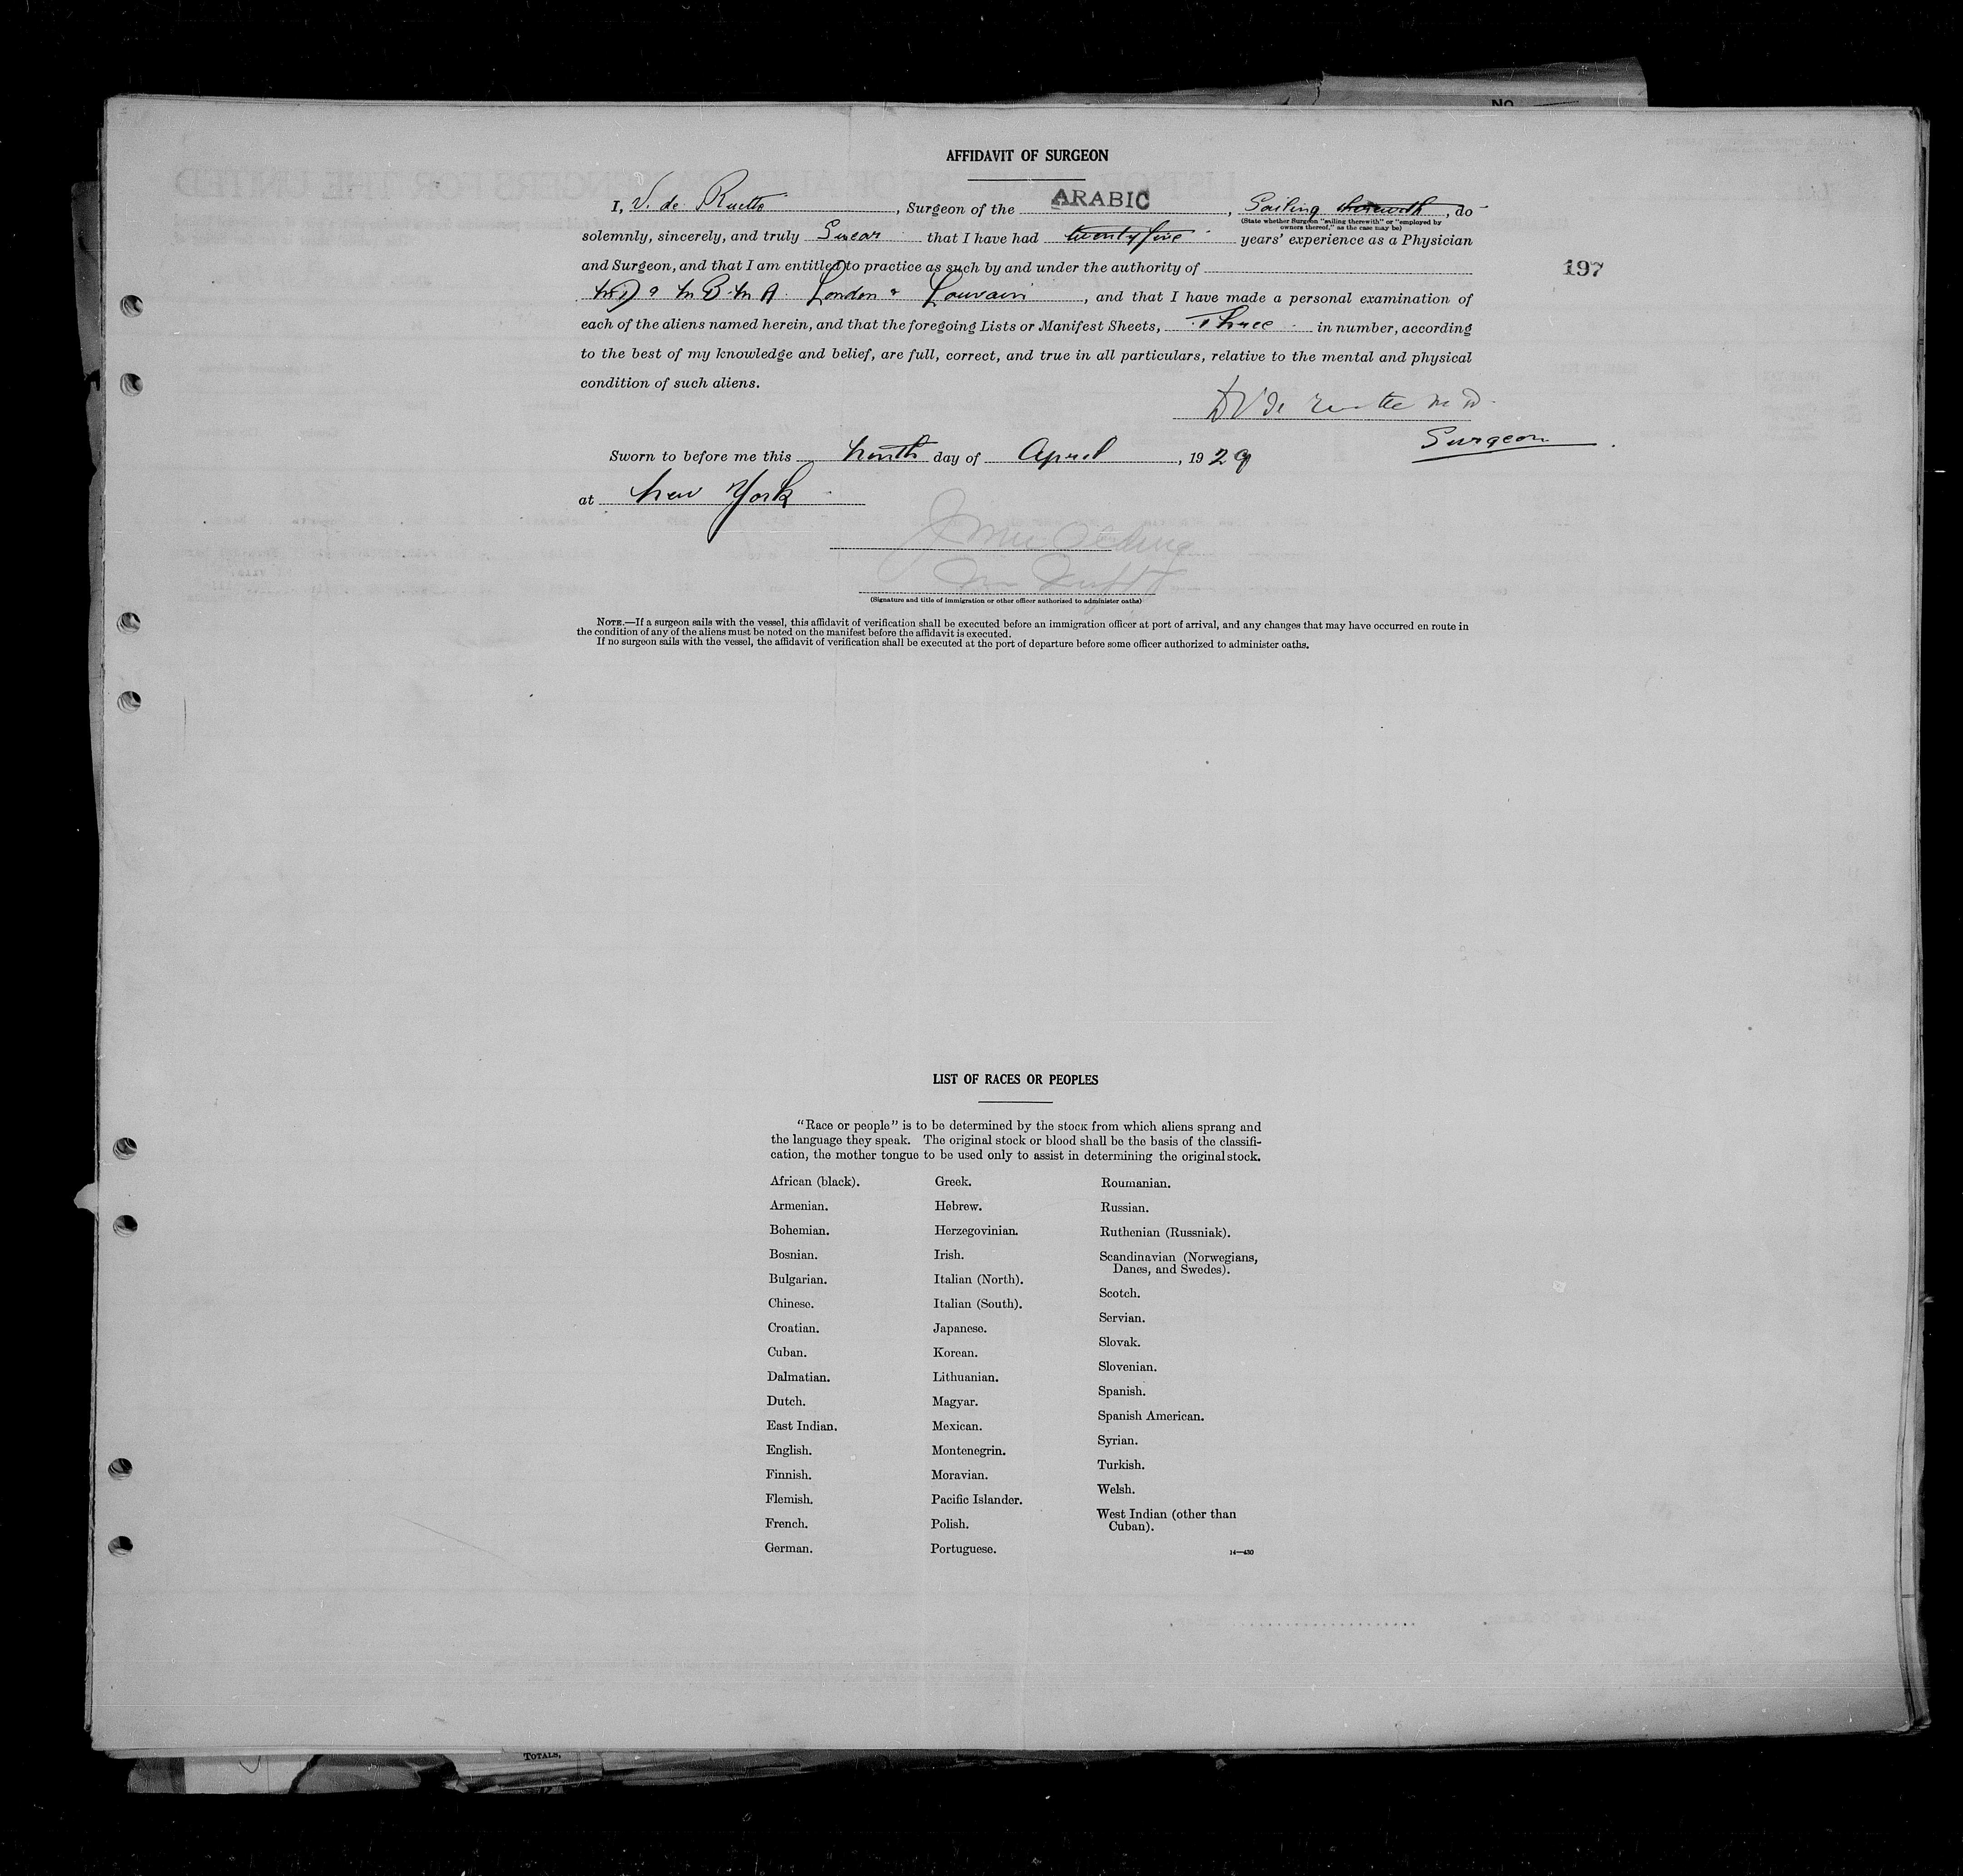 NO.
AFFIDAVIT OF SURGEON
I, V. de Ruette, Surgeon of the ARABIC, Sailing therewith, do
(State whether Surgeon "sailing therewith" or "employed by
owners thereof," as the case may be)
solemnly, sincerely, and truly Swear that I have had twenty five years' experience as a Physician
and Surgeon, and that I am entitled to practice as such by and under the authority of
197
London & Louvain, and that I have made a personal examination of
each of the aliens named herein, and that the foregoing Lists or Manifest Sheets, Three in number, according
to the best of my knowledge and belief, are full, correct, and true in all particulars, relative to the mental and physical
condition of such aliens.
Surgeon.
Sworn to before me this day of April, 1929
at New York
(Signature and title of immigration or other officer authorized to administer oaths)
NOTE.—If a surgeon sails with the vessel, this affidavit of verification shall be executed before an immigration officer at port of arrival, and any changes that may have occurred en route in
the condition of any of the aliens must be noted on the manifest before the affidavit is executed.
If no surgeon sails with the vessel, the affidavit of verification shall be executed at the port of departure before some officer authorized to administer oaths.
LIST OF RACES OR PEOPLES
"Race or people" is to be determined by the stock from which aliens sprang and
the language they speak. The original stock or blood shall be the basis of the classifi-
cation, the mother tongue to be used only to assist in determining the original stock.
African (black).
Armenian.
Bohemian.
Bosnian.
Bulgarian.
Chinese.
Croatian.
Cuban.
Dalmatian.
Dutch.
East Indian.
English.
Finnish.
Flemish.
French.
German.
Greek.
Hebrew.
Herzegovinian.
Irish.
Italian (North).
Italian (South).
Japanese.
Korean.
Lithuanian.
Magyar.
Mexican.
Montenegrin.
Moravian.
Pacific Islander.
Polish.
Portuguese.
Roumanian.
Russian.
Ruthenian (Russniak).
Scandinavian (Norwegians,
Danes, and Swedes).
Scotch.
Servian.
Slovak.
Slovenian.
Spanish.
Spanish American.
Syrian.
Turkish.
Welsh.
West Indian (other than
Cuban).
14—430
TOTALS,